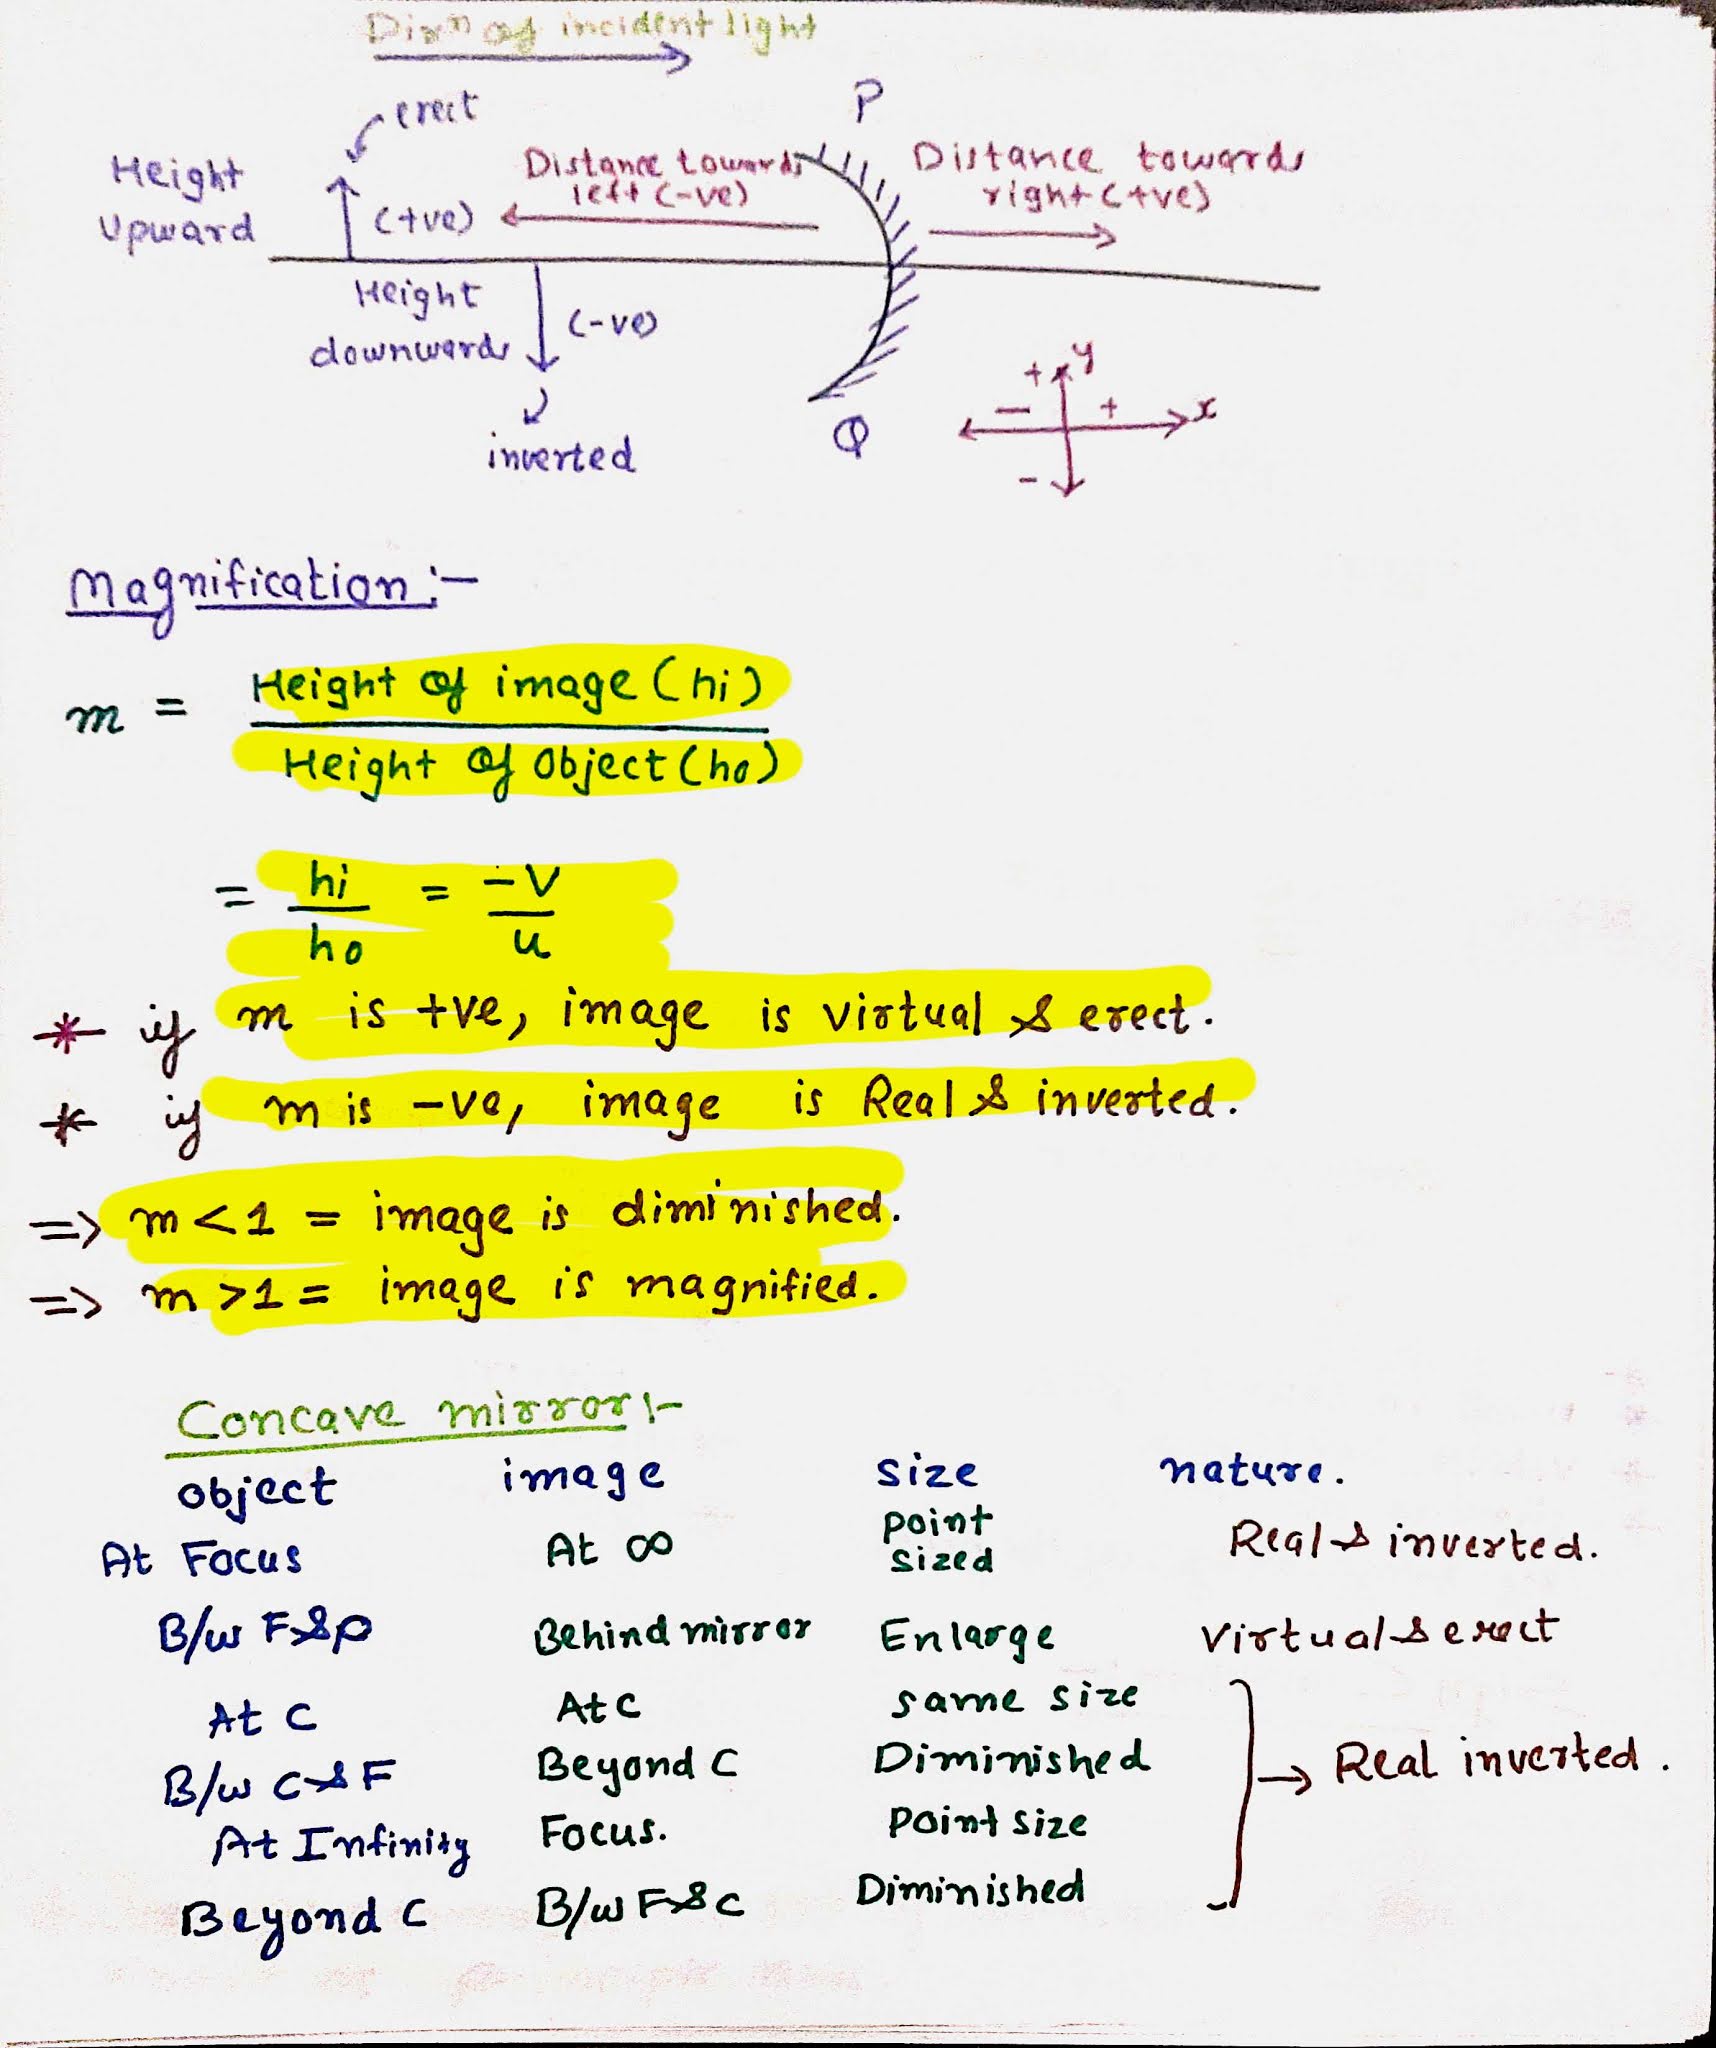 Dirⁿ of incident light
erect
P
Height
Upward
(+ve)
Distance towards
left (-ve)
Distance towards
right (+ve)
Height
downwards
(-ve)
inverted
Q
+ y
- + x
-
Magnification :-
m = Height of image (hi)
Height of Object (ho)
= hi = -v
ho u
* if m is +ve, image is virtual & erect.
* if m is -ve, image is Real & inverted.
=> m < 1 = image is diminished.
=> m > 1 = image is magnified.
Concave mirror :-
object image size nature.
At Focus At ∞ point sized Real & inverted.
B/w F & P Behind mirror Enlarge Virtual & erect
At C At C same size
B/w C & F Beyond C Diminished → Real inverted.
At Infinity Focus. Point size
Beyond C B/w F & C Diminished